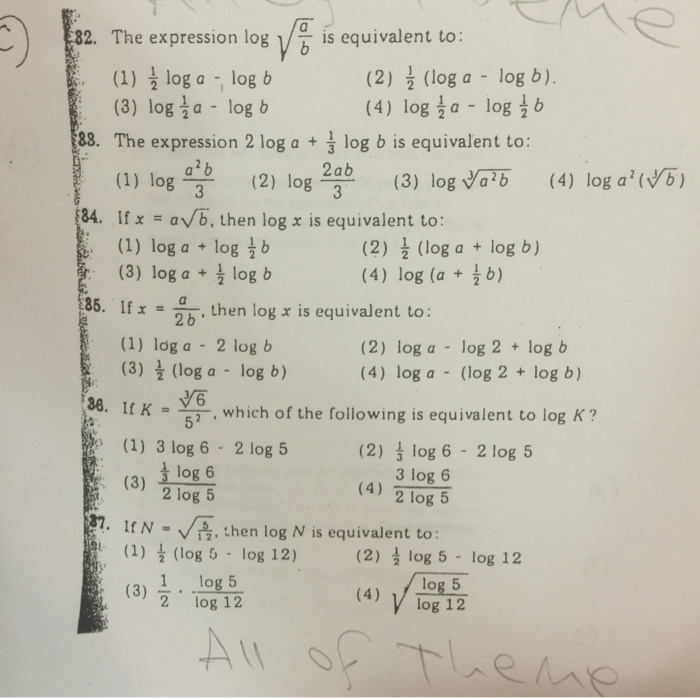 C)
Theme
82. The expression log √(a/b) is equivalent to:
(1) ½ log a - log b (2) ½ (log a - log b).
(3) log ½ a - log b (4) log ½ a - log ½ b
83. The expression 2 log a + ⅓ log b is equivalent to:
(1) log a²b/3 (2) log 2ab/3 (3) log ∛(a²b) (4) log a²(∛b)
84. If x = a√b, then log x is equivalent to:
(1) log a + log ½ b (2) ½ (log a + log b)
(3) log a + ½ log b (4) log (a + ½ b)
85. If x = a/2b, then log x is equivalent to:
(1) log a - 2 log b (2) log a - log 2 + log b
(3) ½ (log a - log b) (4) log a - (log 2 + log b)
86. If K = ∛6/5², which of the following is equivalent to log K?
(1) 3 log 6 - 2 log 5 (2) ⅓ log 6 - 2 log 5
(3) ⅓ log 6 / 2 log 5 (4) 3 log 6 / 2 log 5
87. If N = √(5/12), then log N is equivalent to:
(1) ½ (log 5 - log 12) (2) ½ log 5 - log 12
(3) 1/2 · log 5 / log 12 (4) √(log 5 / log 12)
All of Theme